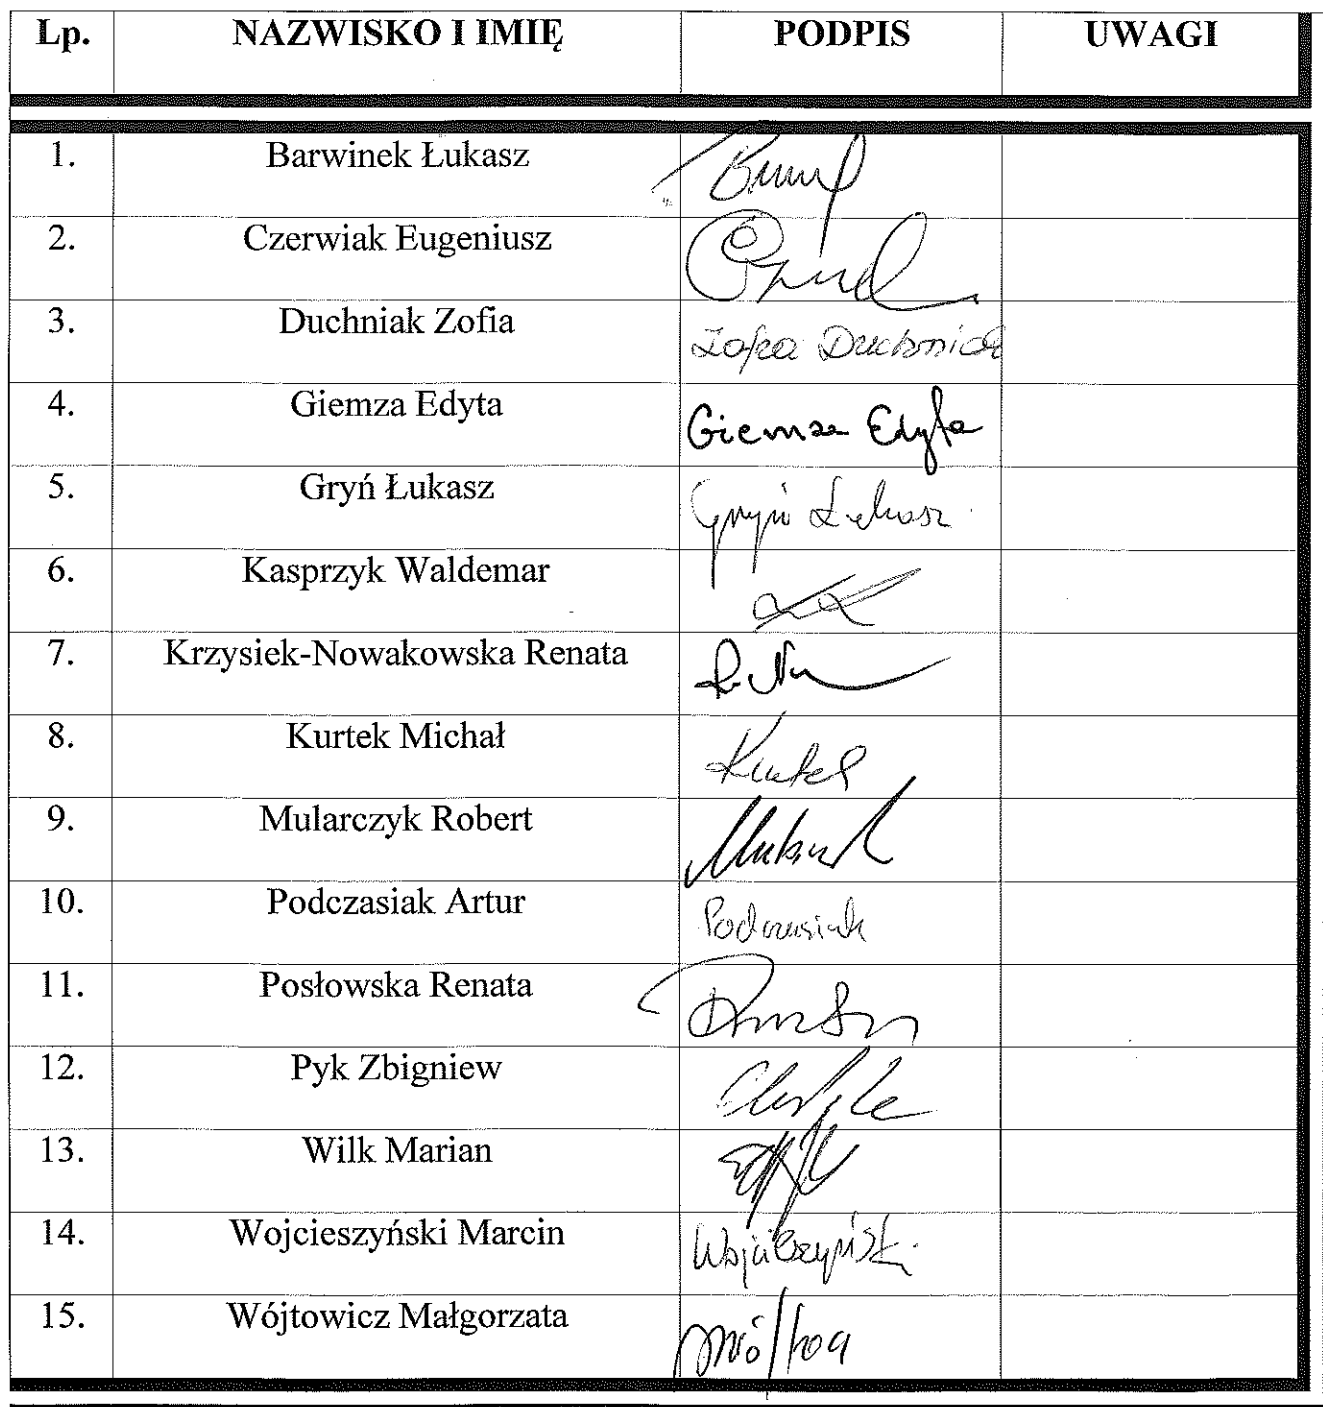 Lp. NAZWISKO I IMIĘ PODPIS UWAGI
1. Barwinek Łukasz
2. Czerwiak Eugeniusz
3. Duchniak Zofia Zofia Duchniak
4. Giemza Edyta Giemza Edyta
5. Gryń Łukasz Gryń Łukasz
6. Kasprzyk Waldemar
7. Krzysiek-Nowakowska Renata
8. Kurtek Michał Kurtek
9. Mularczyk Robert
10. Podczasiak Artur Podczasiak
11. Posłowska Renata
12. Pyk Zbigniew
13. Wilk Marian
14. Wojcieszyński Marcin Wojcieszyński
15. Wójtowicz Małgorzata